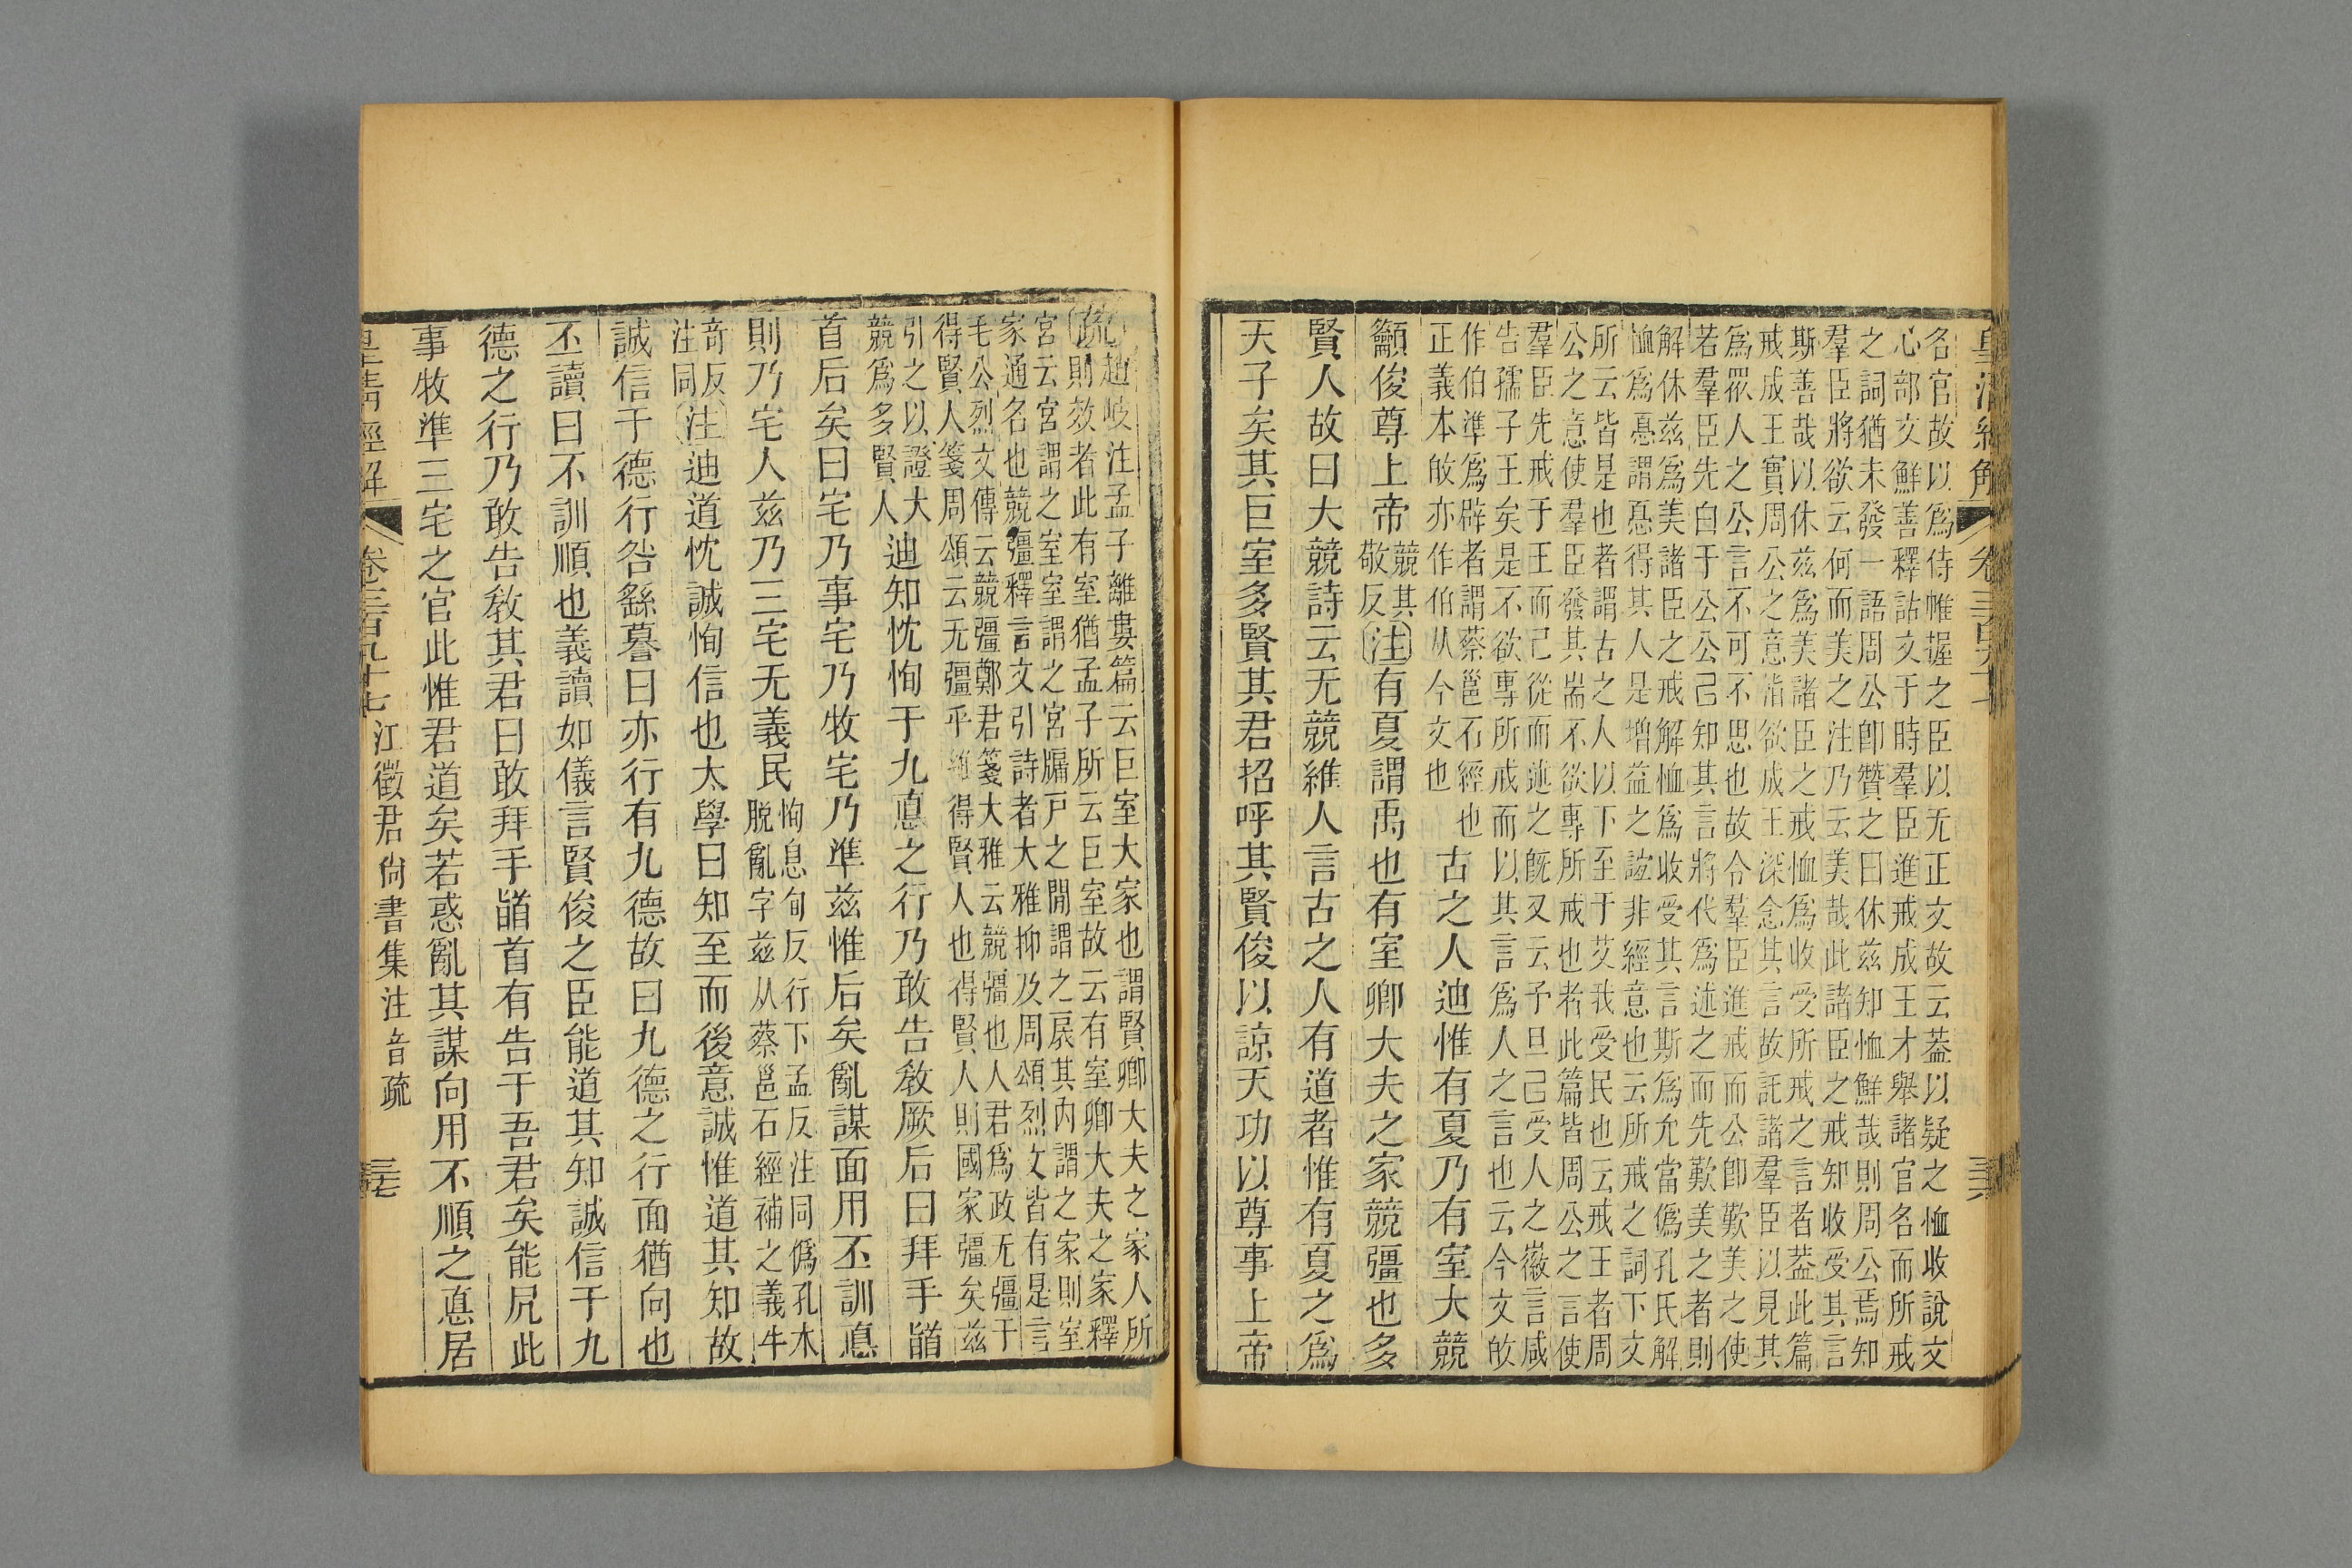 皇清經解
卷三百九十七
三六
名官故以爲侍帷幄之臣以无正文故云葢以疑之恤收說文
心部文鮮善釋詁文于時羣臣進戒成王才舉諸官名而所戒
之詞猶未發一語周公卽贊之曰休茲知恤鮮哉則周公焉知
羣臣將欲云何而美之注乃云美哉此諸臣之戒知收受其言
斯善哉以休茲爲美諸臣之戒恤爲收受所戒之言者葢此篇
戒成王實周公之意㫖欲成王深念其言故託諸羣臣以見其
爲眾人之公言不可不思也故令羣臣進戒而公卽歎美之使
若羣臣先白于公公己知其言將代爲述之而先歎美之者則
解休茲爲美諸臣之戒解恤爲收受其言斯爲允當僞孔氏解
恤爲憂謂憂得其人是增益之誼非經意也云所戒之詞下文
所云皆是也者謂古之人以下至于艾我受民也云戒王者周
公之意使羣臣發其耑不欲專所戒也者此篇皆周公之言使
羣臣先戒于王而己從而述之旣又云予旦己受人之徽言咸
告孺子王矣是不欲專所戒而以其言爲人之言也云今文攽
作伯準爲辟者謂蔡邕石經也
正義本攽亦作伯从今文也
古之人迪惟有夏乃有室大競
籲俊尊上帝
競其
敬反
注有夏謂禹也有室卿大夫之家競彊也多
賢人故曰大競詩云无競維人言古之人有道者惟有夏之爲
天子矣其巨室多賢其君招呼其賢俊以諒天功以尊事上帝
疏趙岐注孟子離婁篇云巨室大家也謂賢卿大夫之家人所
則效者此有室猶孟子所云巨室故云有室卿大夫之家釋
宮云宮謂之室室謂之宮牖戶之閒謂之扆其內謂之家則室
家通名也競彊釋言文引詩者大雅抑及周頌烈文皆有是言
毛公烈文傳云競彊鄭君箋大雅云競彊也人君爲政无彊于
得賢人箋周頌云无彊乎維得賢人也得賢人則國家彊矣茲
引之以證大
競爲多賢人
迪知忱恂于九悳之行乃敢告敎厥后曰拜手䭫
首后矣曰宅乃事宅乃牧宅乃準茲惟后矣亂謀面用丕訓悳
則乃宅人茲乃三宅无義民
恂息旬反行下孟反注同僞孔本
脫亂字茲从蔡邕石經補之義牛
奇反
注同
注迪道忱誠恂信也大學曰知至而後意誠惟道其知故
誠信于德行咎繇謩曰亦行有九德故曰九德之行面猶向也
丕讀曰不訓順也義讀如儀言賢俊之臣能道其知誠信于九
德之行乃敢告敎其君曰敢拜手䭫首有告于吾君矣能凥此
事牧準三宅之官此惟君道矣若惑亂其謀向用不順之悳居
皇清經解
卷三百九十七
江徵君尙書集注音疏
三七